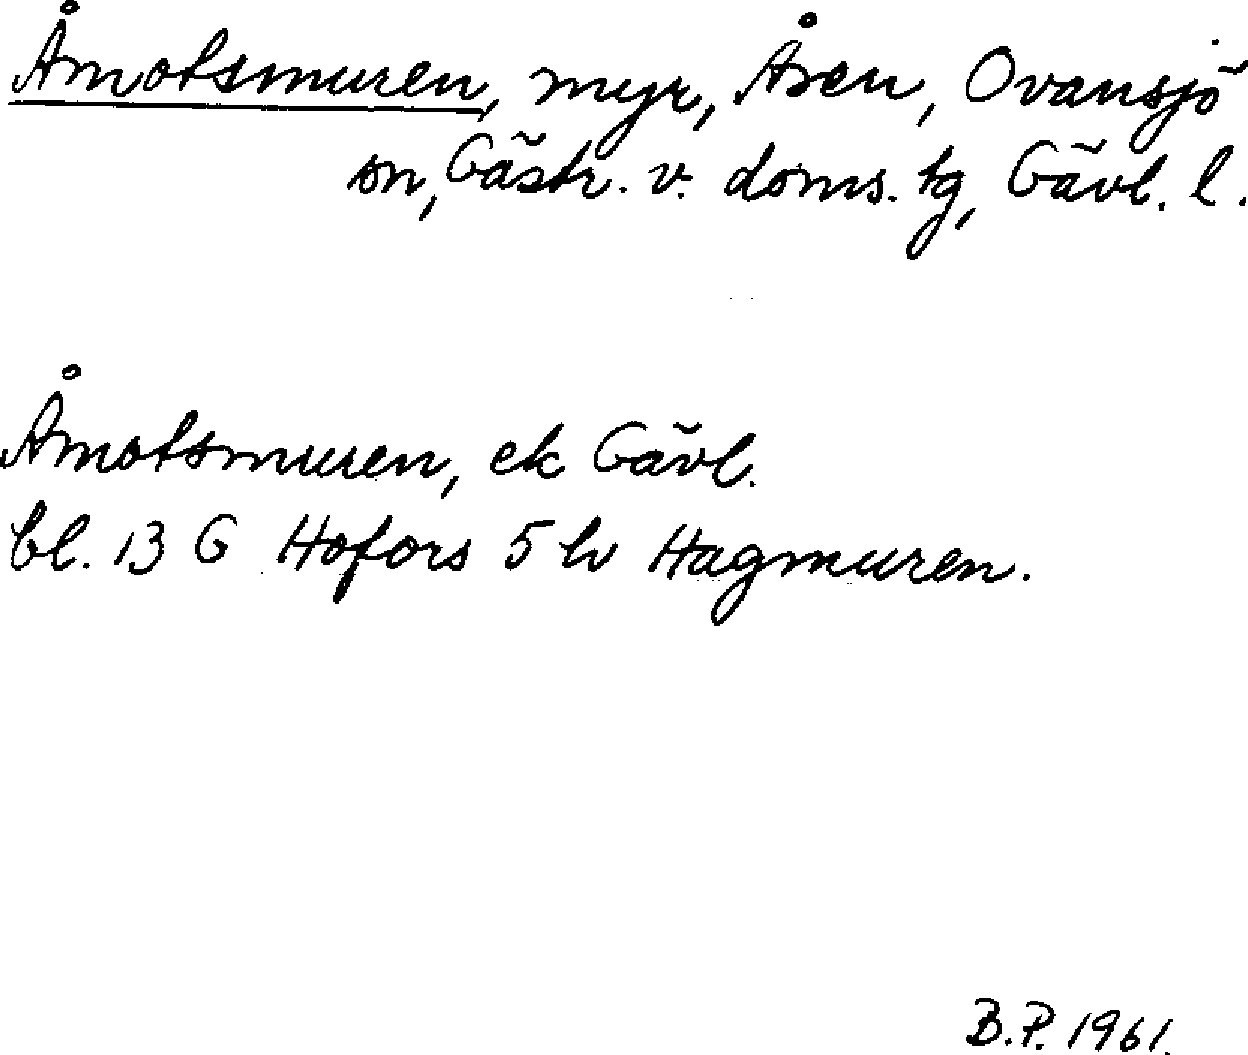 Åmotsmuren, myr, Åsen, Ovansjö
sn, Gästr. v. doms. tg, Gävl. l.
Åmotsmuren, ek Gävl.
bl. 13 G Hofors 5 h Hagmuren.
B.P. 1961.